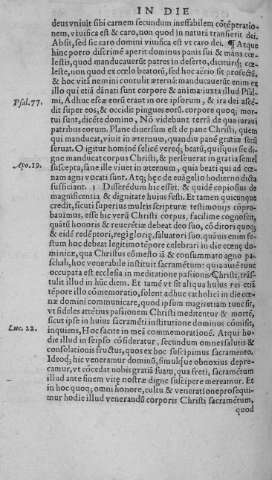 IN DIE
deus vniuit sibi carnem secundum ineffabilem cõtẽperatio-
nem, viuifica est & caro, non quod in natura transierit dei.
Absit, sed sic caro domini viuifica est vt caro dei. ¶ Atque
hinc porro discrimẽ aperit dominus panis sui & manna cœ
lestis, quod manducauerũt patres in deserto,
leste, non quod ex cœlo beato, sed hoc aëreo sit
& hoc vitã nemini contulit æternã: manducauerũt enim ex
illo qui etiã dãnati sunt corpore & anima: iuxta illud Psal-
Psal. 77.
mi, Adhuc escæ eorũ erant in ore ipsorum, & ira dei ascẽ-
dit supe eos, & occidit pingues eorũ. corpore quoq; mor-
tui sunt, dicẽte domino, Nõ videbunt terrã de qua iuraui
patribus eorum. Plane diuersum est de pane Christi, quem
qui manducat, viuit in æternum, quandiu panẽ gratiæ
seruat. O igitur hominẽ felicẽ vereq; beatũ, quisquis se di-
gne manducat corpus Christi, & perseuerat in gratia semel
Apo. 19.
suscepta, sane ille viuet in æternum, quia beati qui ad cœ
nam agni vocati sunt. Atq; hęc de euãgelio hodierno dicta
sufficiant. ¶ Disserẽdum hic esset. & quidẽ copiosius de
magnificentia & dignitate huius festi. Et tamen quicunque
credit, sicuti superius multis scripturæ testimoniis cõpro-
bauimus, esse hic verũ Christi corpus, facilime cognoscit,
quãtũ honoris & reuerẽtiæ debeat deo suo, cõditori quoq;
& eidẽ redẽptori, regi gloriæ, saluatori suo. quàuis enim fe-
stum hoc debeat legitimo tẽpore celebrari in die cœnæ do-
minicæ, qua Christus cõmestio iã & consummato agno pa-
schali, hoc venerabile instituit Sacramẽtum: quia autẽ tunc
occupata est ecclesia in meditatione passionis Christi, tris-
tulit illud in hũc diem. Et tamẽ vt sit aliqua huius rei etiã
tẽpore illo cõmemoratio, solent adhuc catholici in die cœ
næ domini communicare, quod ipsum magistratum iure sit,
vt fideles attẽtius passionem Christi meditentur & mortẽ,
sicut ipse in huius sacramẽti institutione dominus cõmisit,
Luc. 22.
inquiens, Hoc facite in meã commemorationẽ. Atqui ho-
die illud in seipso cõsideratur, secundum omnes salutis &
consolationis fructus, quos ex hoc suscipimus sacramento.
Ideoq; hic veneramur dominũ, simulque obnoxius depre-
camur, vt cõcedat nobis gratiã suam, qua freti, Sacramẽtum
illud ante finem vitę nostræ digne suscipere mereamur. Et
in hoc quoq; omni honore, cultu & veneratione prosequi-
mur hodie illud venerandũ corporis Christi sacramẽtum,
quod